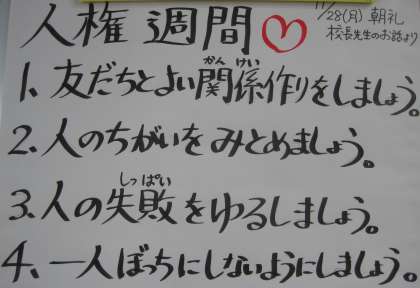 人権週間♡
11/28(月) 朝礼
校長先生のお話より
1、友だちとよい関係作りをしましょう。
かんけい
2、人のちがいをみとめましょう。
3、人の失敗をゆるしましょう。
しっぱい
4、一人ぼっちにしないようにしましょう。